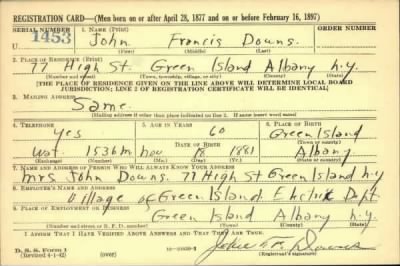 REGISTRATION CARD—(Men born on or after April 28, 1877 and on or before February 16, 1897)
SERIAL NUMBER 1. NAME (Print) ORDER NUMBER
U 1453 John Francis Downs
(First) (Middle) (Last)
2. PLACE OF RESIDENCE (Print)
77 High St. Green Island Albany N.Y.
(Number and street) (Town, township, village, or city) (County) (State)
[THE PLACE OF RESIDENCE GIVEN ON THE LINE ABOVE WILL DETERMINE LOCAL BOARD
JURISDICTION; LINE 2 OF REGISTRATION CERTIFICATE WILL BE IDENTICAL]
3. MAILING ADDRESS
Same.
[Mailing address if other than place indicated on line 2. If same insert word same]
4. TELEPHONE 5. AGE IN YEARS 6. PLACE OF BIRTH
Yes 60 Green Island
DATE OF BIRTH (Town or county)
Wat. 1536 M Nov 1881 Albany
(Exchange) (Number) (Mo.) (Day) (Yr.) (State or country)
7. NAME AND ADDRESS OF PERSON WHO WILL ALWAYS KNOW YOUR ADDRESS
Mrs John Downs. 77 High St Green Island N.Y
8. EMPLOYER'S NAME AND ADDRESS
Village of Green Island. Electric Dept
9. PLACE OF EMPLOYMENT OR BUSINESS
Green Island Albany N.y.
(Number and street or R. F. D. number) (Town) (County) (State)
I AFFIRM THAT I HAVE VERIFIED ABOVE ANSWERS AND THAT THEY ARE TRUE.
D. S. S. Form 1
(Revised 4-1-42) (over)
(Registrant's signature)